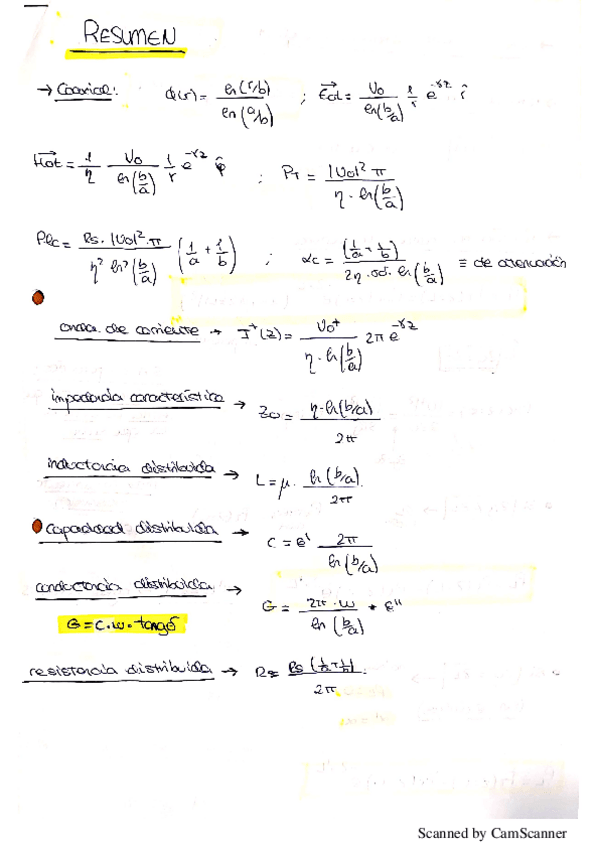 RESUMEN
→ Coaxial: ϕ(r) = ln(r/b) / ln(a/b) ; E⃗ot = Vo / ln(b/a) 1/r e^-γz r̂
H⃗ot = 1/η Vo / ln(b/a) 1/r e^-γz φ̂ ; PT = |Vo|² π / η · ln(b/a)
Plc = Rs · |Vo|² · π / η² ln²(b/a) (1/a + 1/b) ; αc = (1/a + 1/b) / 2η · σδ · ln(b/a) ≡ de atenuación
onda de corriente → I⁺(z) = Vo⁺ / η · ln(b/a) 2π e^-γz
impedancia característica → Zo = η · ln(b/a) / 2π
inductancia distribuida → L = μ · ln(b/a) / 2π
capacidad distribuida → C = ε' 2π / ln(b/a)
conductancia distribuida → G = 2π · ω / ln(b/a) * ε''
G = C · ω · tangδ
resistencia distribuida → R = Rs (1/a + 1/b) / 2π
Scanned by CamScanner